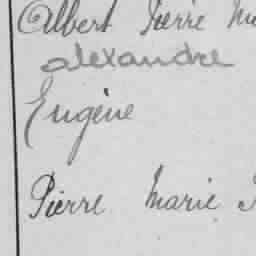 Albert Pierre
alexandre
Eugène
Pierre Marie